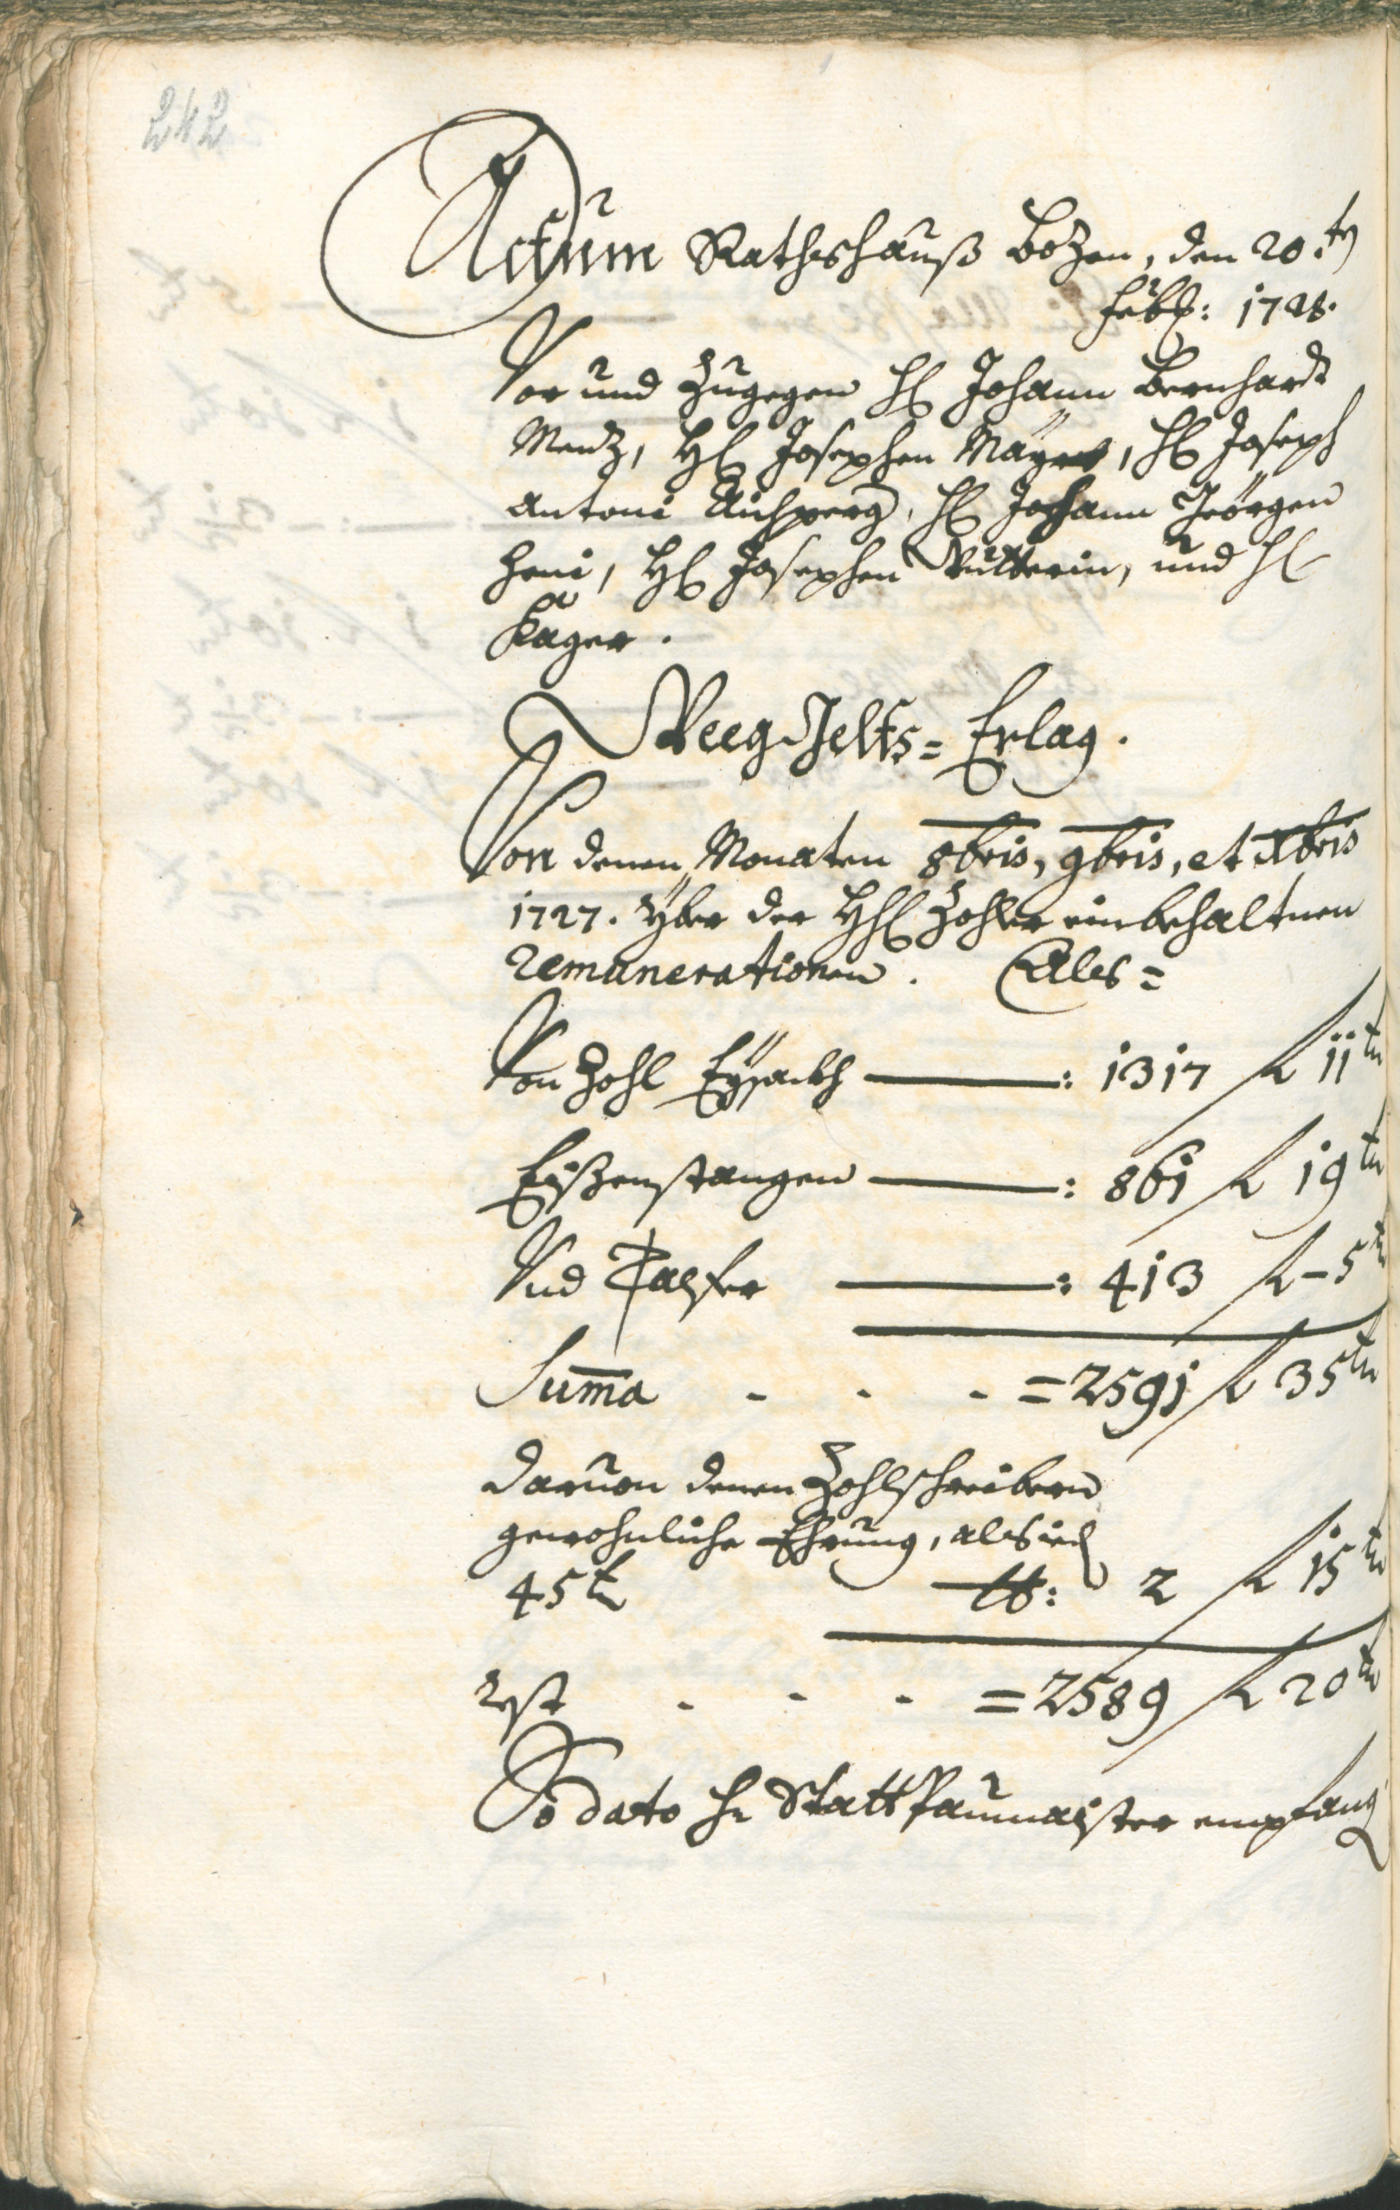 242
Actum Rathshauß Bozen, den 20.ten
Feb: 1728.
Vor und Zugegen H Johann Bernhardt
Menz, H Josephen Mäyrl, H Joseph
Antoni Aichperg, H Johann Jeörgen
Heni, H Josephen Kütterin, und H
Kager.
Weeg Gelts= Erlag.
Von denen Monaten 8bris, 9bris, et Xbris
1727. yber der HH Zohler einbehaltnen
remunerationen. Als=
Von Zohl Eÿsackh : 1317 f 11 kr
Eißenstangen : 861 f 19 kr
Und Talfer : 413 f - 5 kr
Suma - - - = 2591 f 35 kr
Daruon denen Zohlschreibern
gewohnliche Ehrung, als ied
45 kr : 2 f 15 kr
Rest - - - = 2589 f 20 kr
So dato H Statt Paumaister empfang